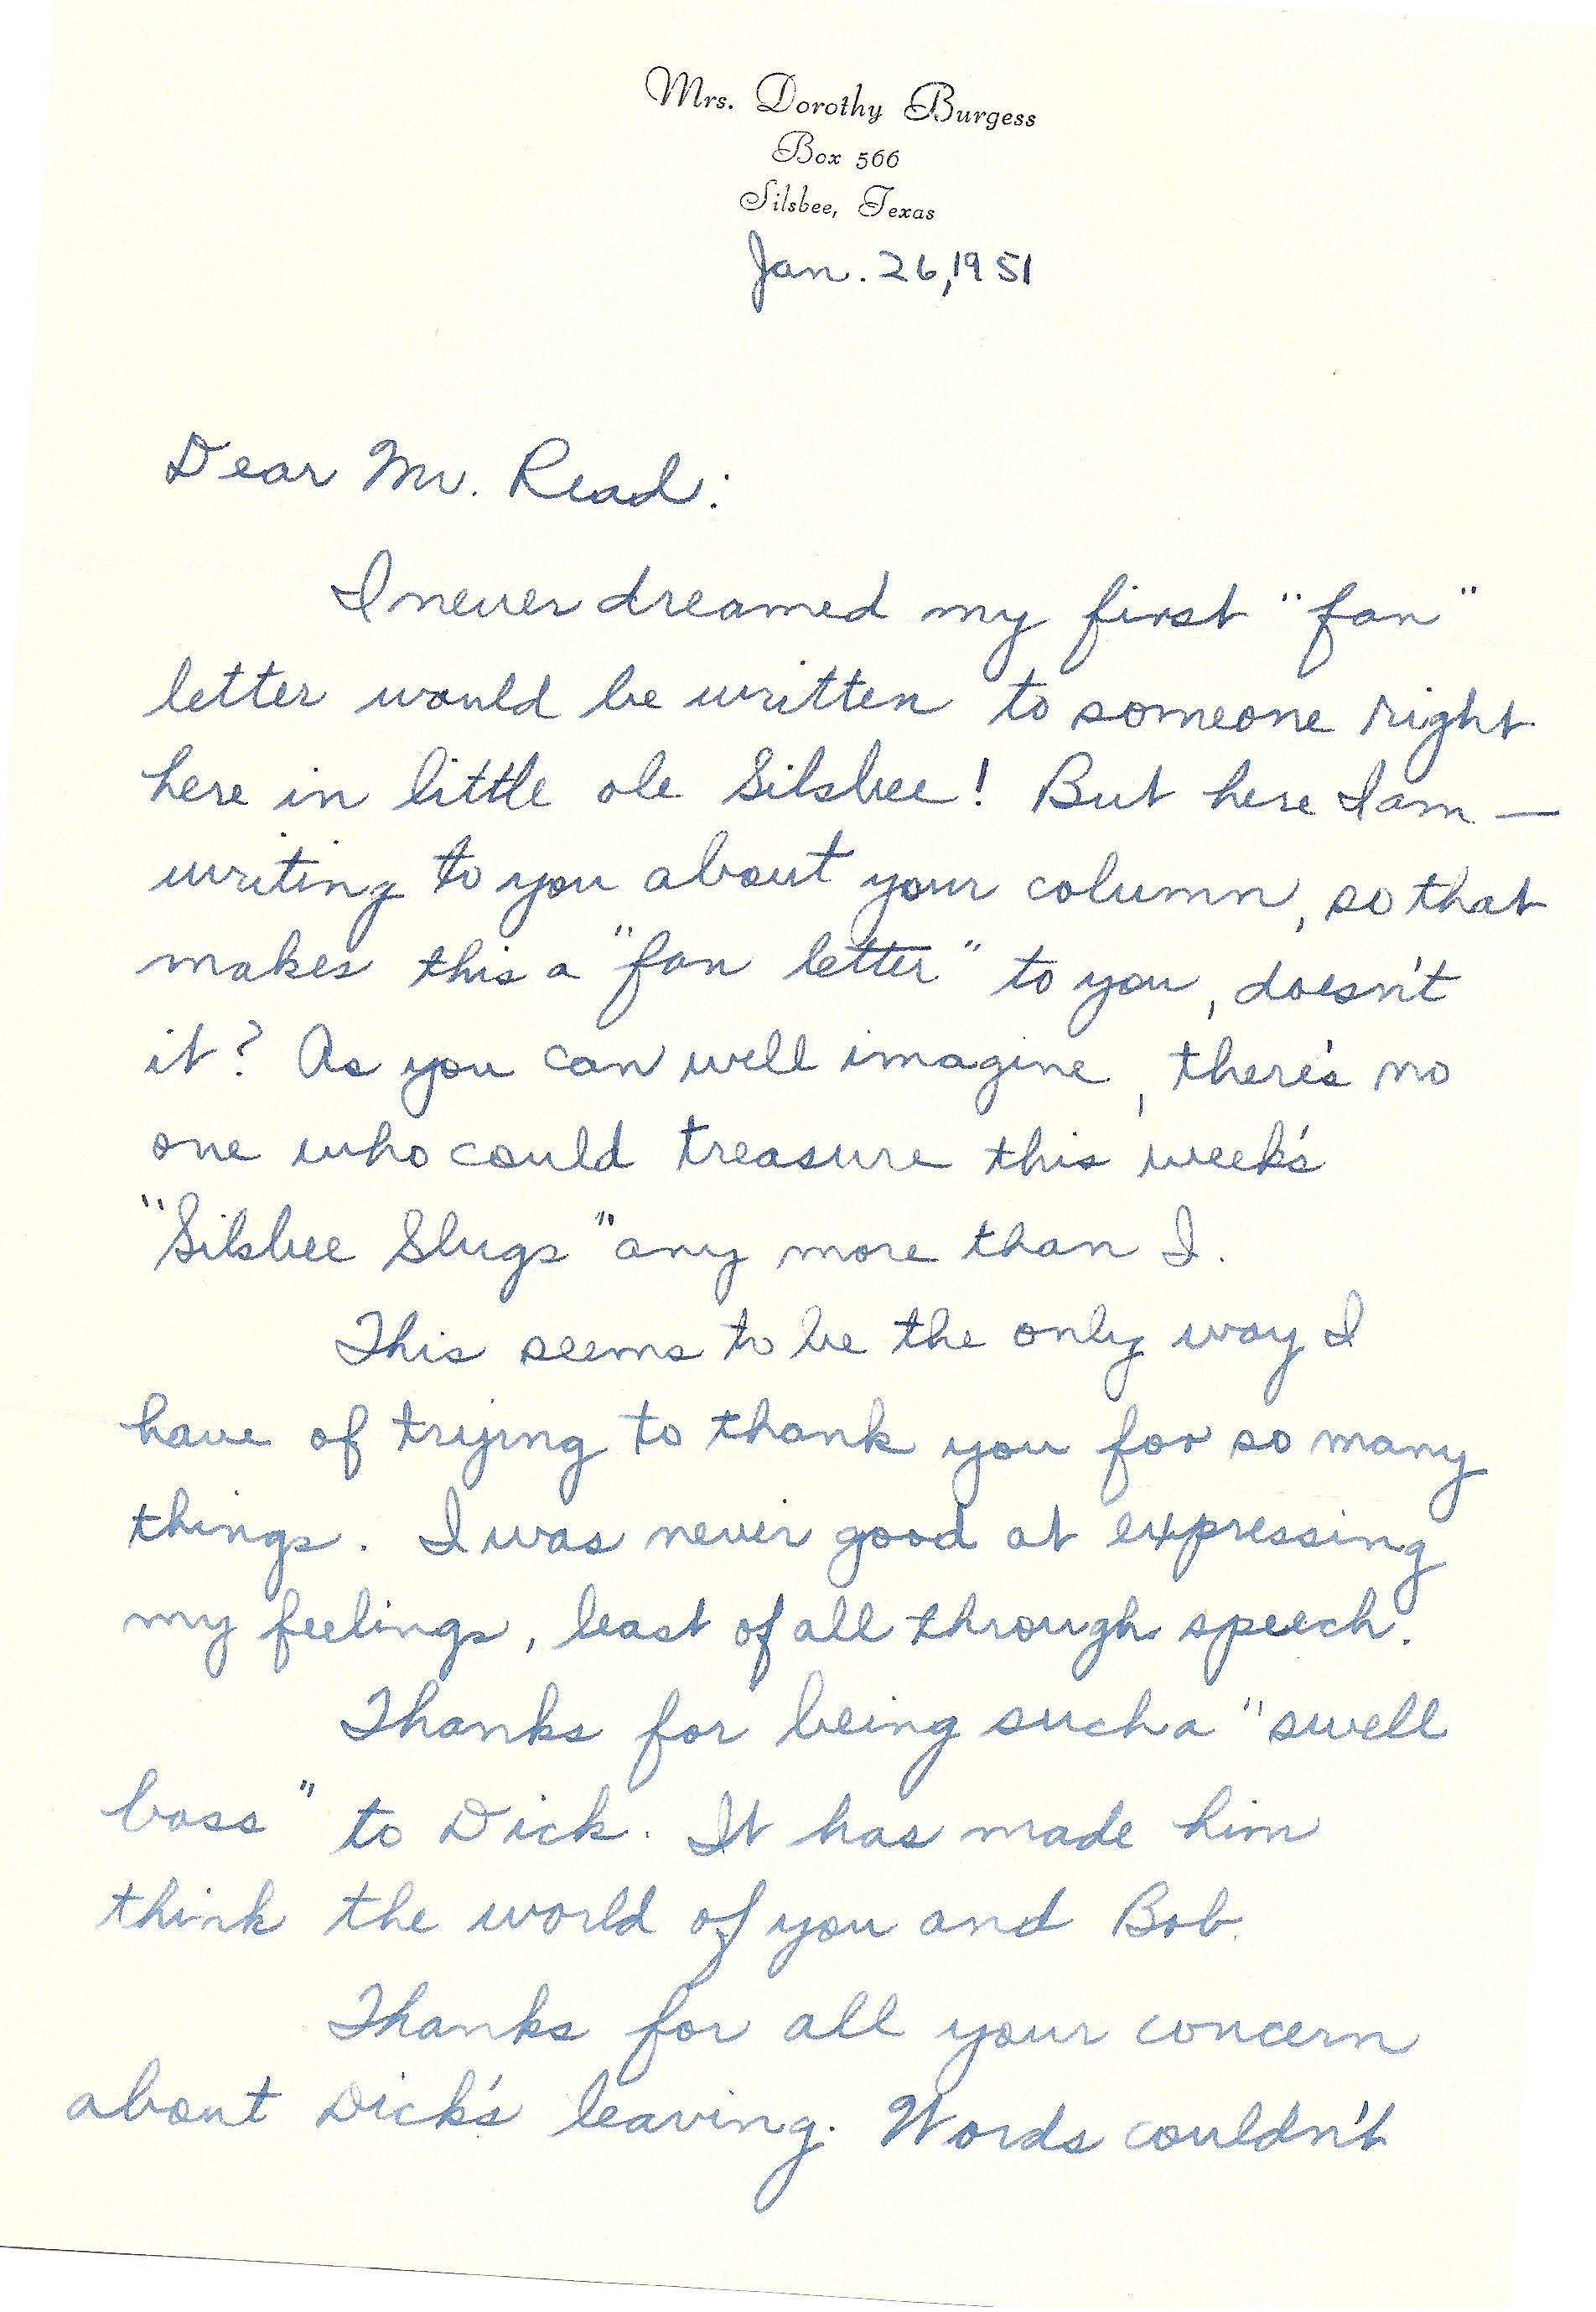 Mrs. Dorothy Burgess
Box 566
Silsbee, Texas
Jan. 26, 1951
Dear Mr. Read:
I never dreamed my first "fan"
letter would be written to someone right
here in little ole Silsbee! But here I am —
writing to you about your column, so that
makes this a "fan letter" to you, doesn't
it? As you can well imagine, there's no
one who could treasure this week's
"Silsbee Slugs" any more than I.
This seems to be the only way I
have of trying to thank you for so many
things. I was never good at expressing
my feelings, least of all through speech.
Thanks for being such a "swell
boss" to Dick. It has made him
think the world of you and Bob.
Thanks for all your concern
about Dick's leaving. Words couldn't